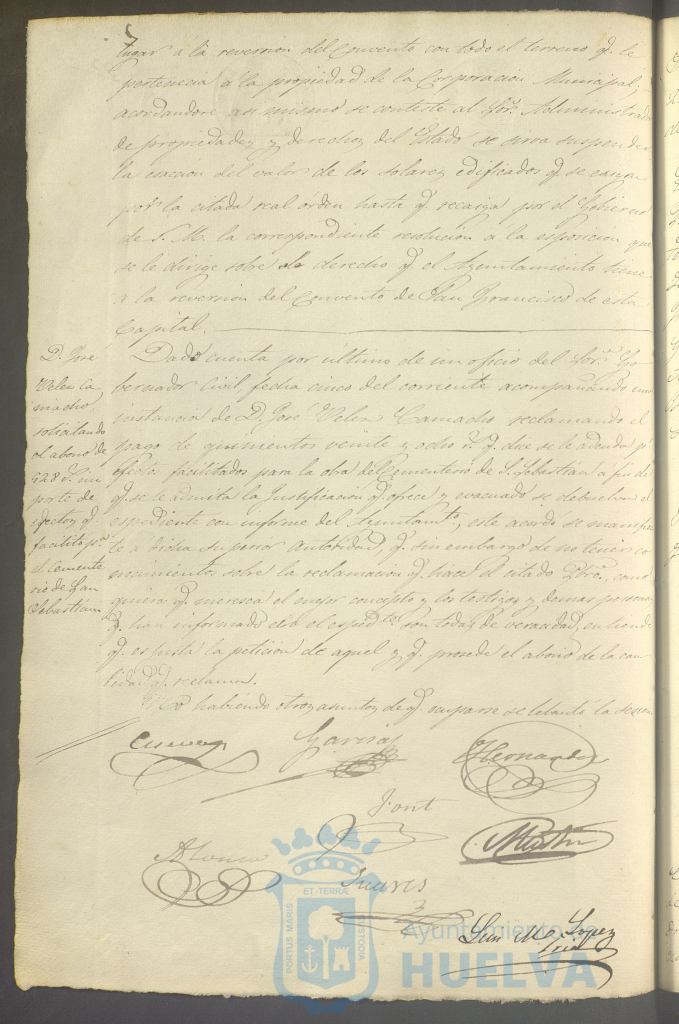 lugar a la reversion del Convento con todo el terreno q. le
pertenecia á la propiedad de la Corporacion Municipal;
acordandose asi mismo se conteste al Sor. Administrador
de propiedades y derechos del Estado se sirva suspender
la esaccion del valor de los solares edificados q. se
por la citada real órden hasta q. recaiga por el Gobierno
de S. M. la correspondiente resolucion a la esposicion que
se le dirige sobre el derecho q. el Ayuntamiento tiene
a la reversion del Convento de San Francisco de esta
Capital.
D. José
Velez Ca
macho,
solicitando
el abono de
528 r. im
porte de
efectos q.
facilitó pa.
el cemente
rio de San
Sebastian
Dado cuenta por último de un oficio del Sor. Go
bernador Civil, fecha cinco del corriente acompañando una
instancia de D. José Velez Camacho reclamando el
pago de quinientos veinte y ocho r. q. dice se le adeuda pr.
efectos facilitados para la obra del Cementerio de S. Sebastian a fin de
q. se le admita la Justificacion q. ofrece y evacuado se debuelva el
espediente con informe del Ayuntamto., este acordó se manifies
te á dicha superior autoridad, q. sin embargo de no tener co
nocimientos sobre la reclamacion q. hace el citado como
quiera q. merezca el mejor concepto y los testigos y demas personas
q. han informado en el espedte. son todas de veracidad, entiende
q. es justa la peticion de aquel y q. procede el abono de la can
tidad q. reclama.
No habiendo otros asuntos de q. ocuparse se lebantó la sesion
Cuevas
Garcia
Hernandez
Font
Martin
Alonso
Suares
Luis M. Lopez
Srio
PORTUS MARIS ET TERRÆ CUSTODIA
Ayuntamiento
HUELVA